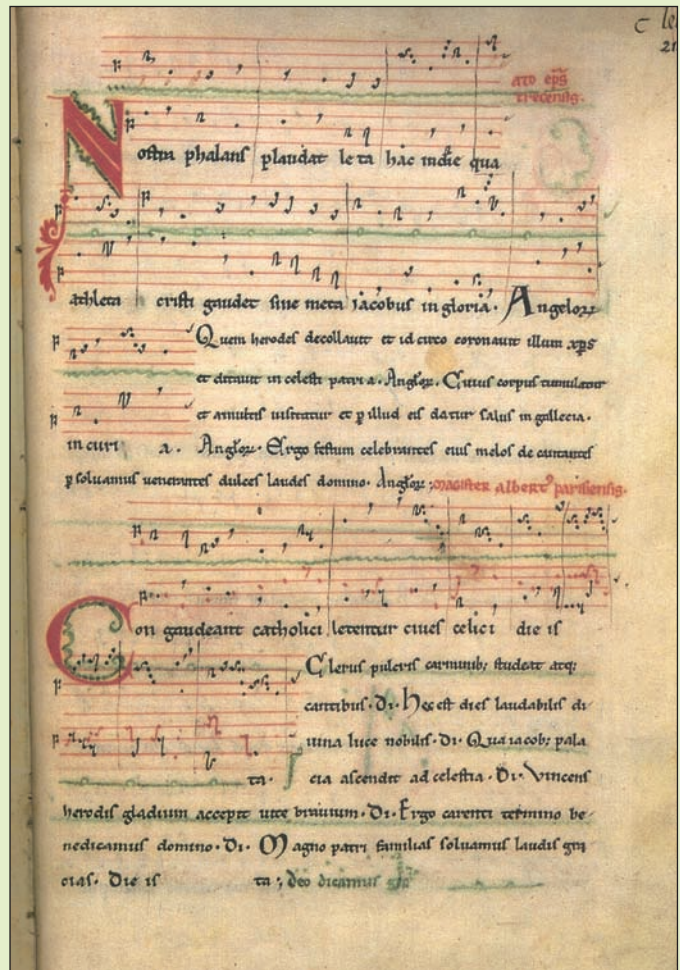 C le
21
ato eps
trecensis.
Nostra phalans plaudat leta hac in die qua
athleta cristi gaudet sine meta jacobus in gloria. Angelorz
Quem herodes decollavit et id circo coronavit illum xps
et ditavit in celesti patria. Anglor. Cuius corpus tumulatur
et a multis visitatur et p illud eis datur salus in gallecia.
in curi a. Anglor. Ergo festum celebrantes eius melos decantantes
p solvamus venerantes dulces laudes domino. Anglor. magister albert9 parisiensis.
Con gaudeant catholici letentur cives celici die is
Clerus pulcris carminib; studeat atq;
cantibus. Di. Hec est dies laudabilis di
vina luce nobilis. Di. Qua iacob; pala
ta. cia ascendit ad celestia. Di. Vincens
herodis gladium accepit vite bravium. Di. Ergo carenti termino be-
nedicamus domino. Di. Magno patri familias solvamus laudis gra
cias. Die is ta; deo dicamus